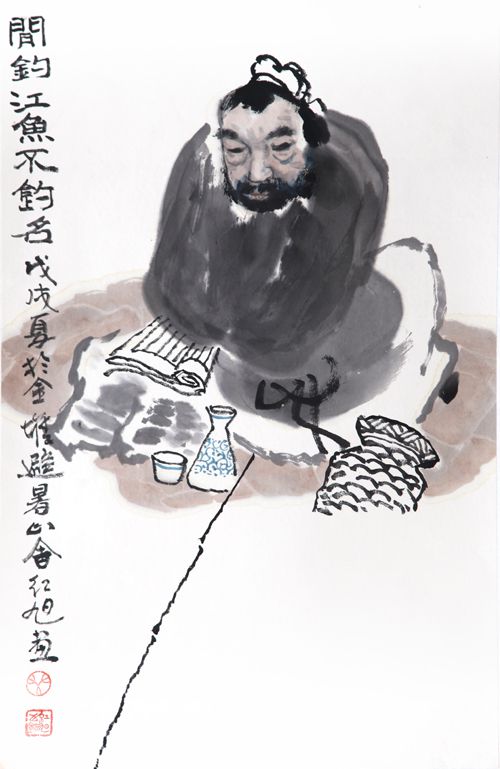 閒釣江魚不釣名戊戌夏於金堆避暑山舍紅旭畫